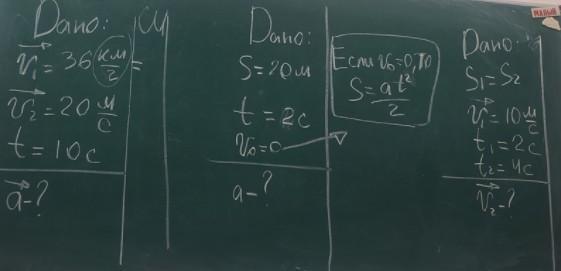 Дано:
СИ
v₁ = 36 км/г =
v₂ = 20 м/с
t = 10 с
a - ?
Дано:
S = 20 м
t = 2 с
v₀ = 0
a - ?
Если v₀ = 0, то
S = at²/2
Дано:
S₁ = S₂
v₁ = 10 м/с
t₁ = 2 с
t₂ = 4 с
v₂ - ?